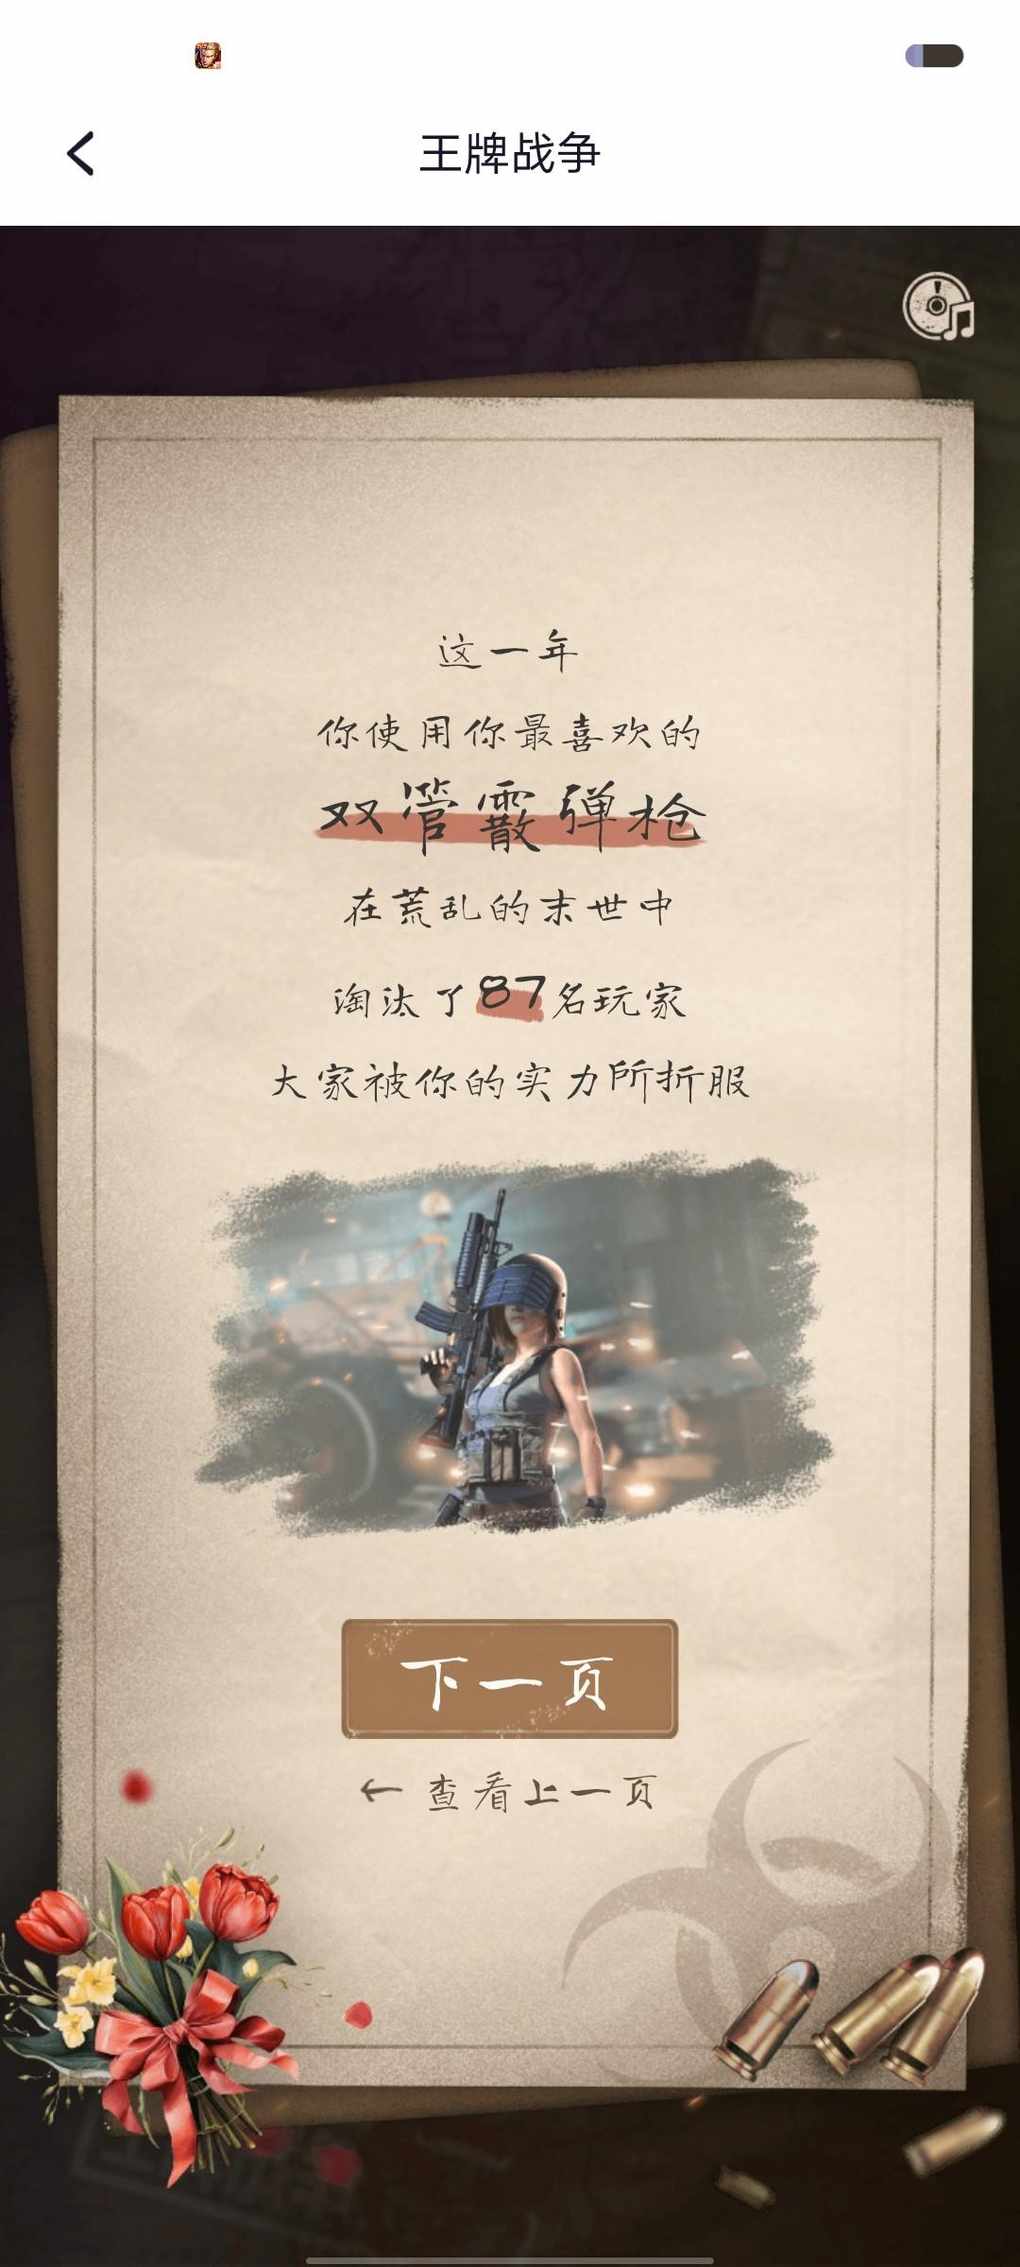 王牌战争
这一年
你使用你最喜欢的
双管霰弹枪
在荒乱的末世中
淘汰了87名玩家
大家被你的实力所折服
下一页
← 查看上一页